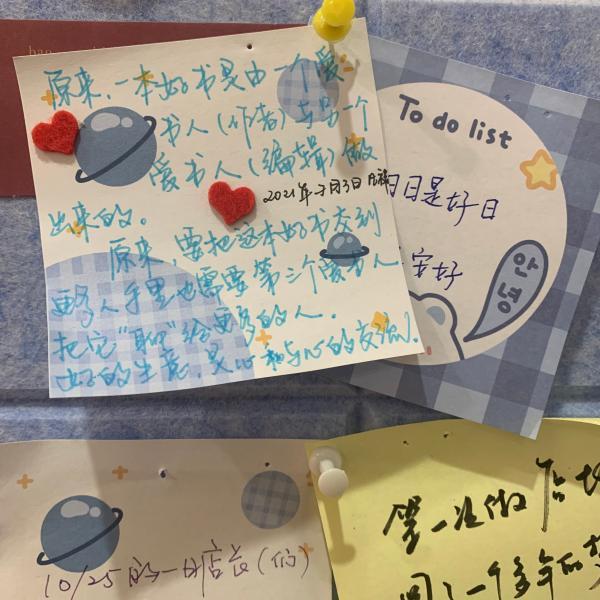 原来,一本好书是由一个爱
书人(作者)与另一个
爱书人(编辑)做
出来的。
2021年7月3日
原来,要把这本好书交到
更多人手里也需要第三个爱书人
把它“聊”给更多的人.
好的生意,是心和与心的交流.
To do list
日日是好日
安好
안녕
10/25的一日店长(们)
第一次做店